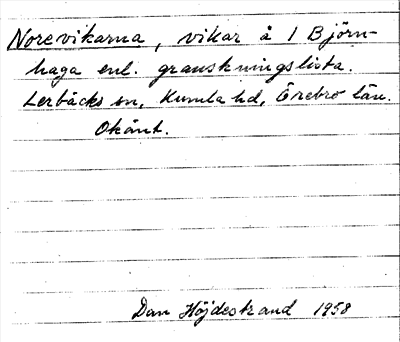 Norevikarna, vikar å 1 Björn-
haga enl. granskningslista.
Lerbäcks sn, Kumla hd, Örebro län.
Okänt.
Dan Höjdestrand 1958